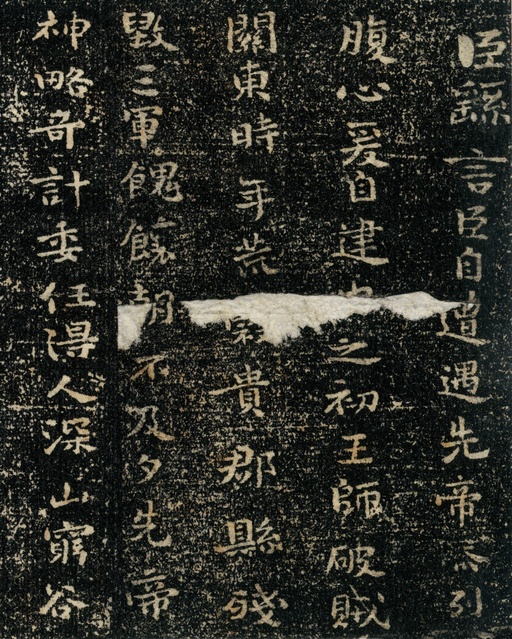 臣繇言臣自遭遇先帝忝列
腹心爰自建之初王師破賊
關東時年荒貴郡縣殘
毀三軍餽饟朝不及夕先帝
神略奇計委任得人深山窮谷